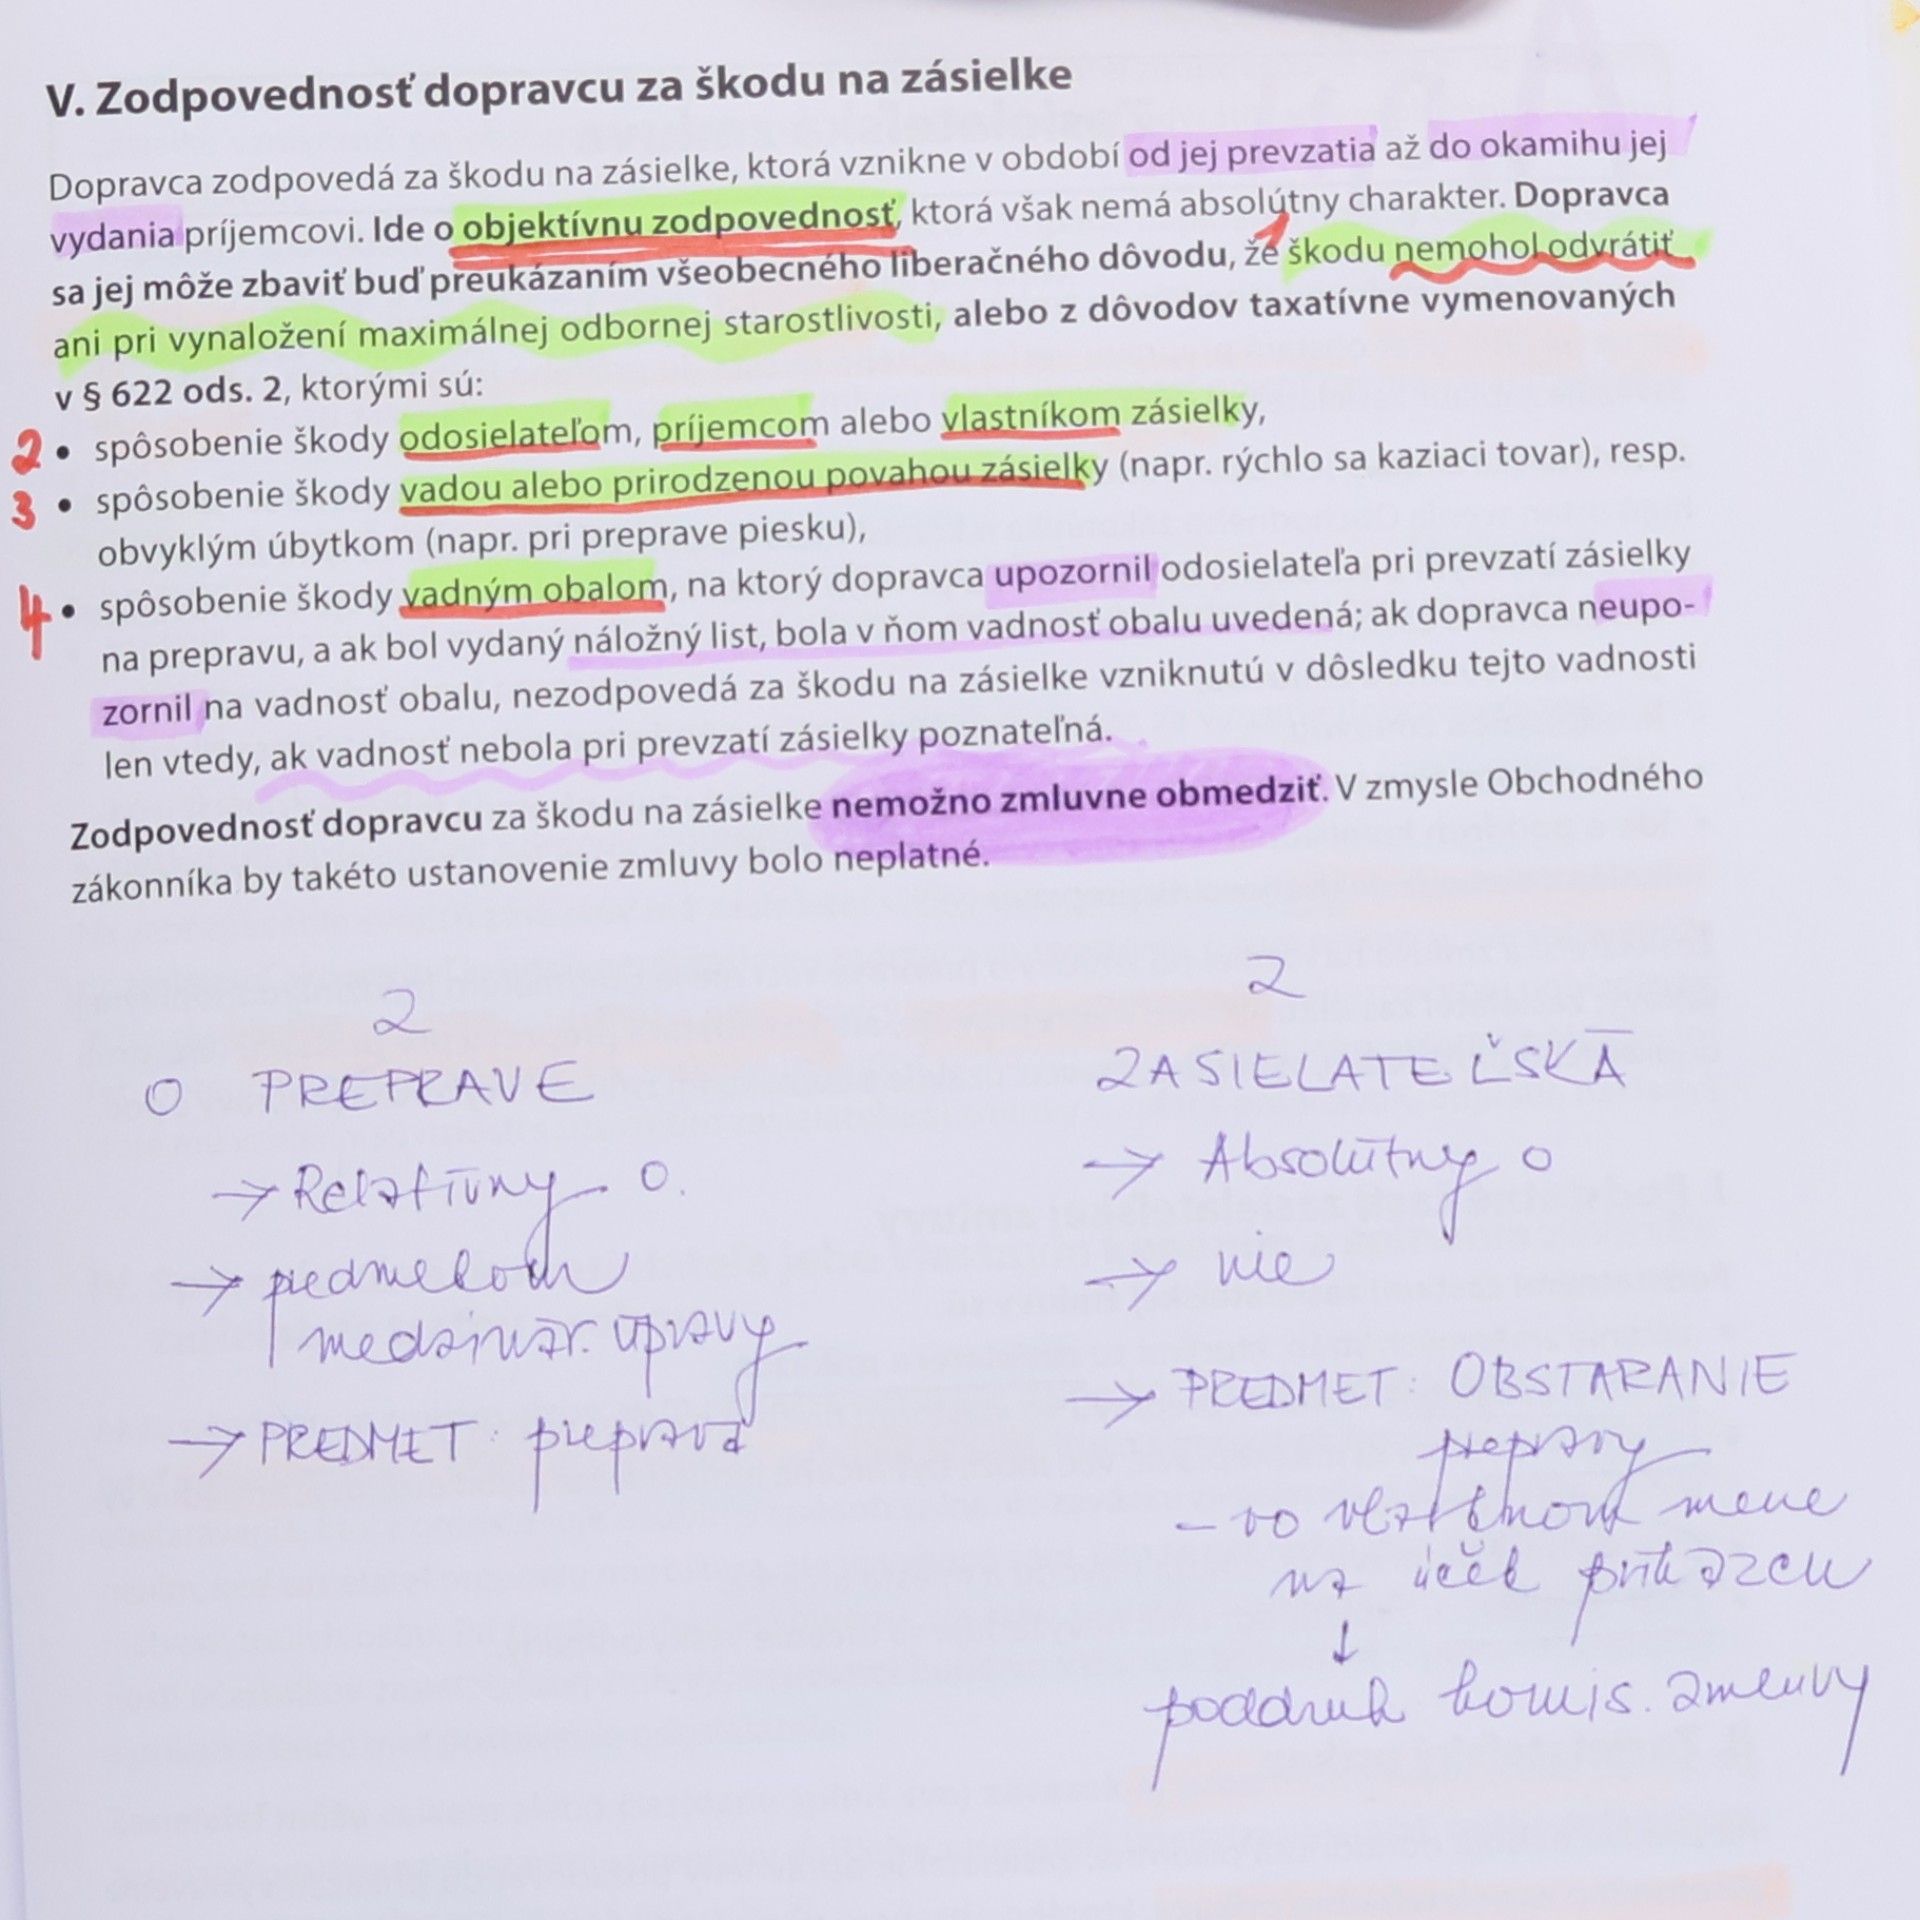 V. Zodpovednosť dopravcu za škodu na zásielke
Dopravca zodpovedá za škodu na zásielke, ktorá vznikne v období od jej prevzatia až do okamihu jej
vydania príjemcovi. Ide o objektívnu zodpovednosť, ktorá však nemá absolútny charakter. Dopravca
1
sa jej môže zbaviť buď preukázaním všeobecného liberačného dôvodu, že škodu nemohol odvrátiť
ani pri vynaložení maximálnej odbornej starostlivosti, alebo z dôvodov taxatívne vymenovaných
v § 622 ods. 2, ktorými sú:
2 • spôsobenie škody odosielateľom, príjemcom alebo vlastníkom zásielky,
3 • spôsobenie škody vadou alebo prirodzenou povahou zásielky (napr. rýchlo sa kaziaci tovar), resp.
obvyklým úbytkom (napr. pri preprave piesku),
4 • spôsobenie škody vadným obalom, na ktorý dopravca upozornil odosielateľa pri prevzatí zásielky
na prepravu, a ak bol vydaný náložný list, bola v ňom vadnosť obalu uvedená; ak dopravca neupo-
zornil na vadnosť obalu, nezodpovedá za škodu na zásielke vzniknutú v dôsledku tejto vadnosti
len vtedy, ak vadnosť nebola pri prevzatí zásielky poznateľná.
Zodpovednosť dopravcu za škodu na zásielke nemožno zmluvne obmedziť. V zmysle Obchodného
zákonníka by takéto ustanovenie zmluvy bolo neplatné.
Z
O PREPRAVE
→ Relatívny O.
→ predmetom
medzinár. úpravy
→ PREDMET: preprava
Z
ZASIELATEĽSKÁ
→ Absolútny O
→ nie
→ PREDMET: OBSTARANIE
prepravy
- vo vlastnom mene
na účet príkazcu
↓
poddruh komis. zmluvy